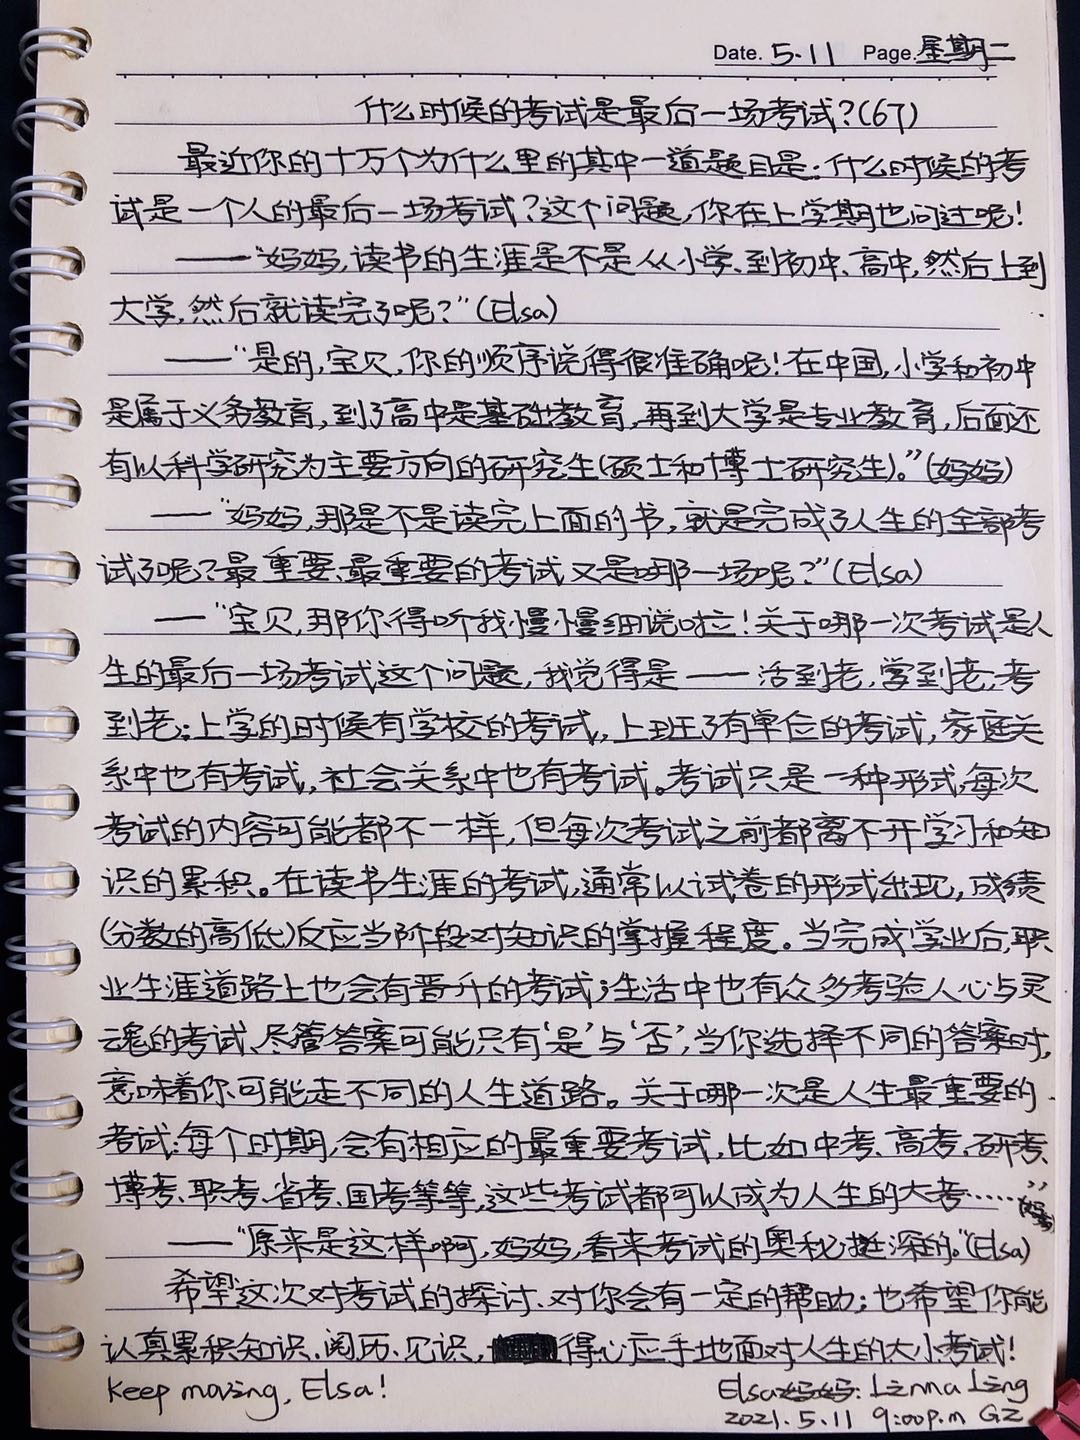 Date. 5.11 Page. 星期二
什么时候的考试是最后一场考试?(67)
最近你的十万个为什么里的其中一道题目是:什么时候的考
试是一个人的最后一场考试?这个问题,你在上学期也问过呢!
——“妈妈,读书的生涯是不是从小学、到初中、高中,然后上到
大学,然后就读完了呢?”(Elsa)
——“是的,宝贝,你的顺序说得很准确呢!在中国,小学和初中
是属于义务教育,到了高中是基础教育,再到大学是专业教育,后面还
有以科学研究为主要方向的研究生(硕士和博士研究生)。”(妈妈)
——“妈妈,那是不是读完上面的书,就是完成了人生的全部考
试了呢?最重要、最重要的考试又是哪一场呢?”(Elsa)
——“宝贝,那你得听我慢慢细说啦!关于哪一次考试是人
生的最后一场考试这个问题,我觉得是——活到老,学到老,考
到老;上学的时候有学校的考试,上班了有单位的考试,家庭关
系中也有考试,社会关系中也有考试。考试只是一种形式,每次
考试的内容可能都不一样,但每次考试之前都离不开学习和知
识的累积。在读书生涯的考试,通常以试卷的形式出现,成绩
(分数的高低)反应当阶段对知识的掌握程度。当完成学业后,职
业生涯道路上也会有晋升的考试;生活中也有众多考验人心与灵
魂的考试、尽管答案可能只有‘是’与‘否’,当你选择不同的答案时,
意味着你可能走不同的人生道路。关于哪一次是人生最重要的
考试:每个时期,会有相应的最重要考试,比如中考、高考、研考、
博考、职考、省考、国考等等,这些考试都可以成为人生的大考……”(妈妈)
——“原来是这样啊,妈妈,看来考试的奥秘挺深的。”(Elsa)
希望这次对考试的探讨、对你会有一定的帮助;也希望你能
认真累积知识、阅历、见识,得心应手地面对人生的大小考试!
Keep moving, Elsa!
Elsa妈妈: Linna Ling
2021.5.11 9:00p.m GZ